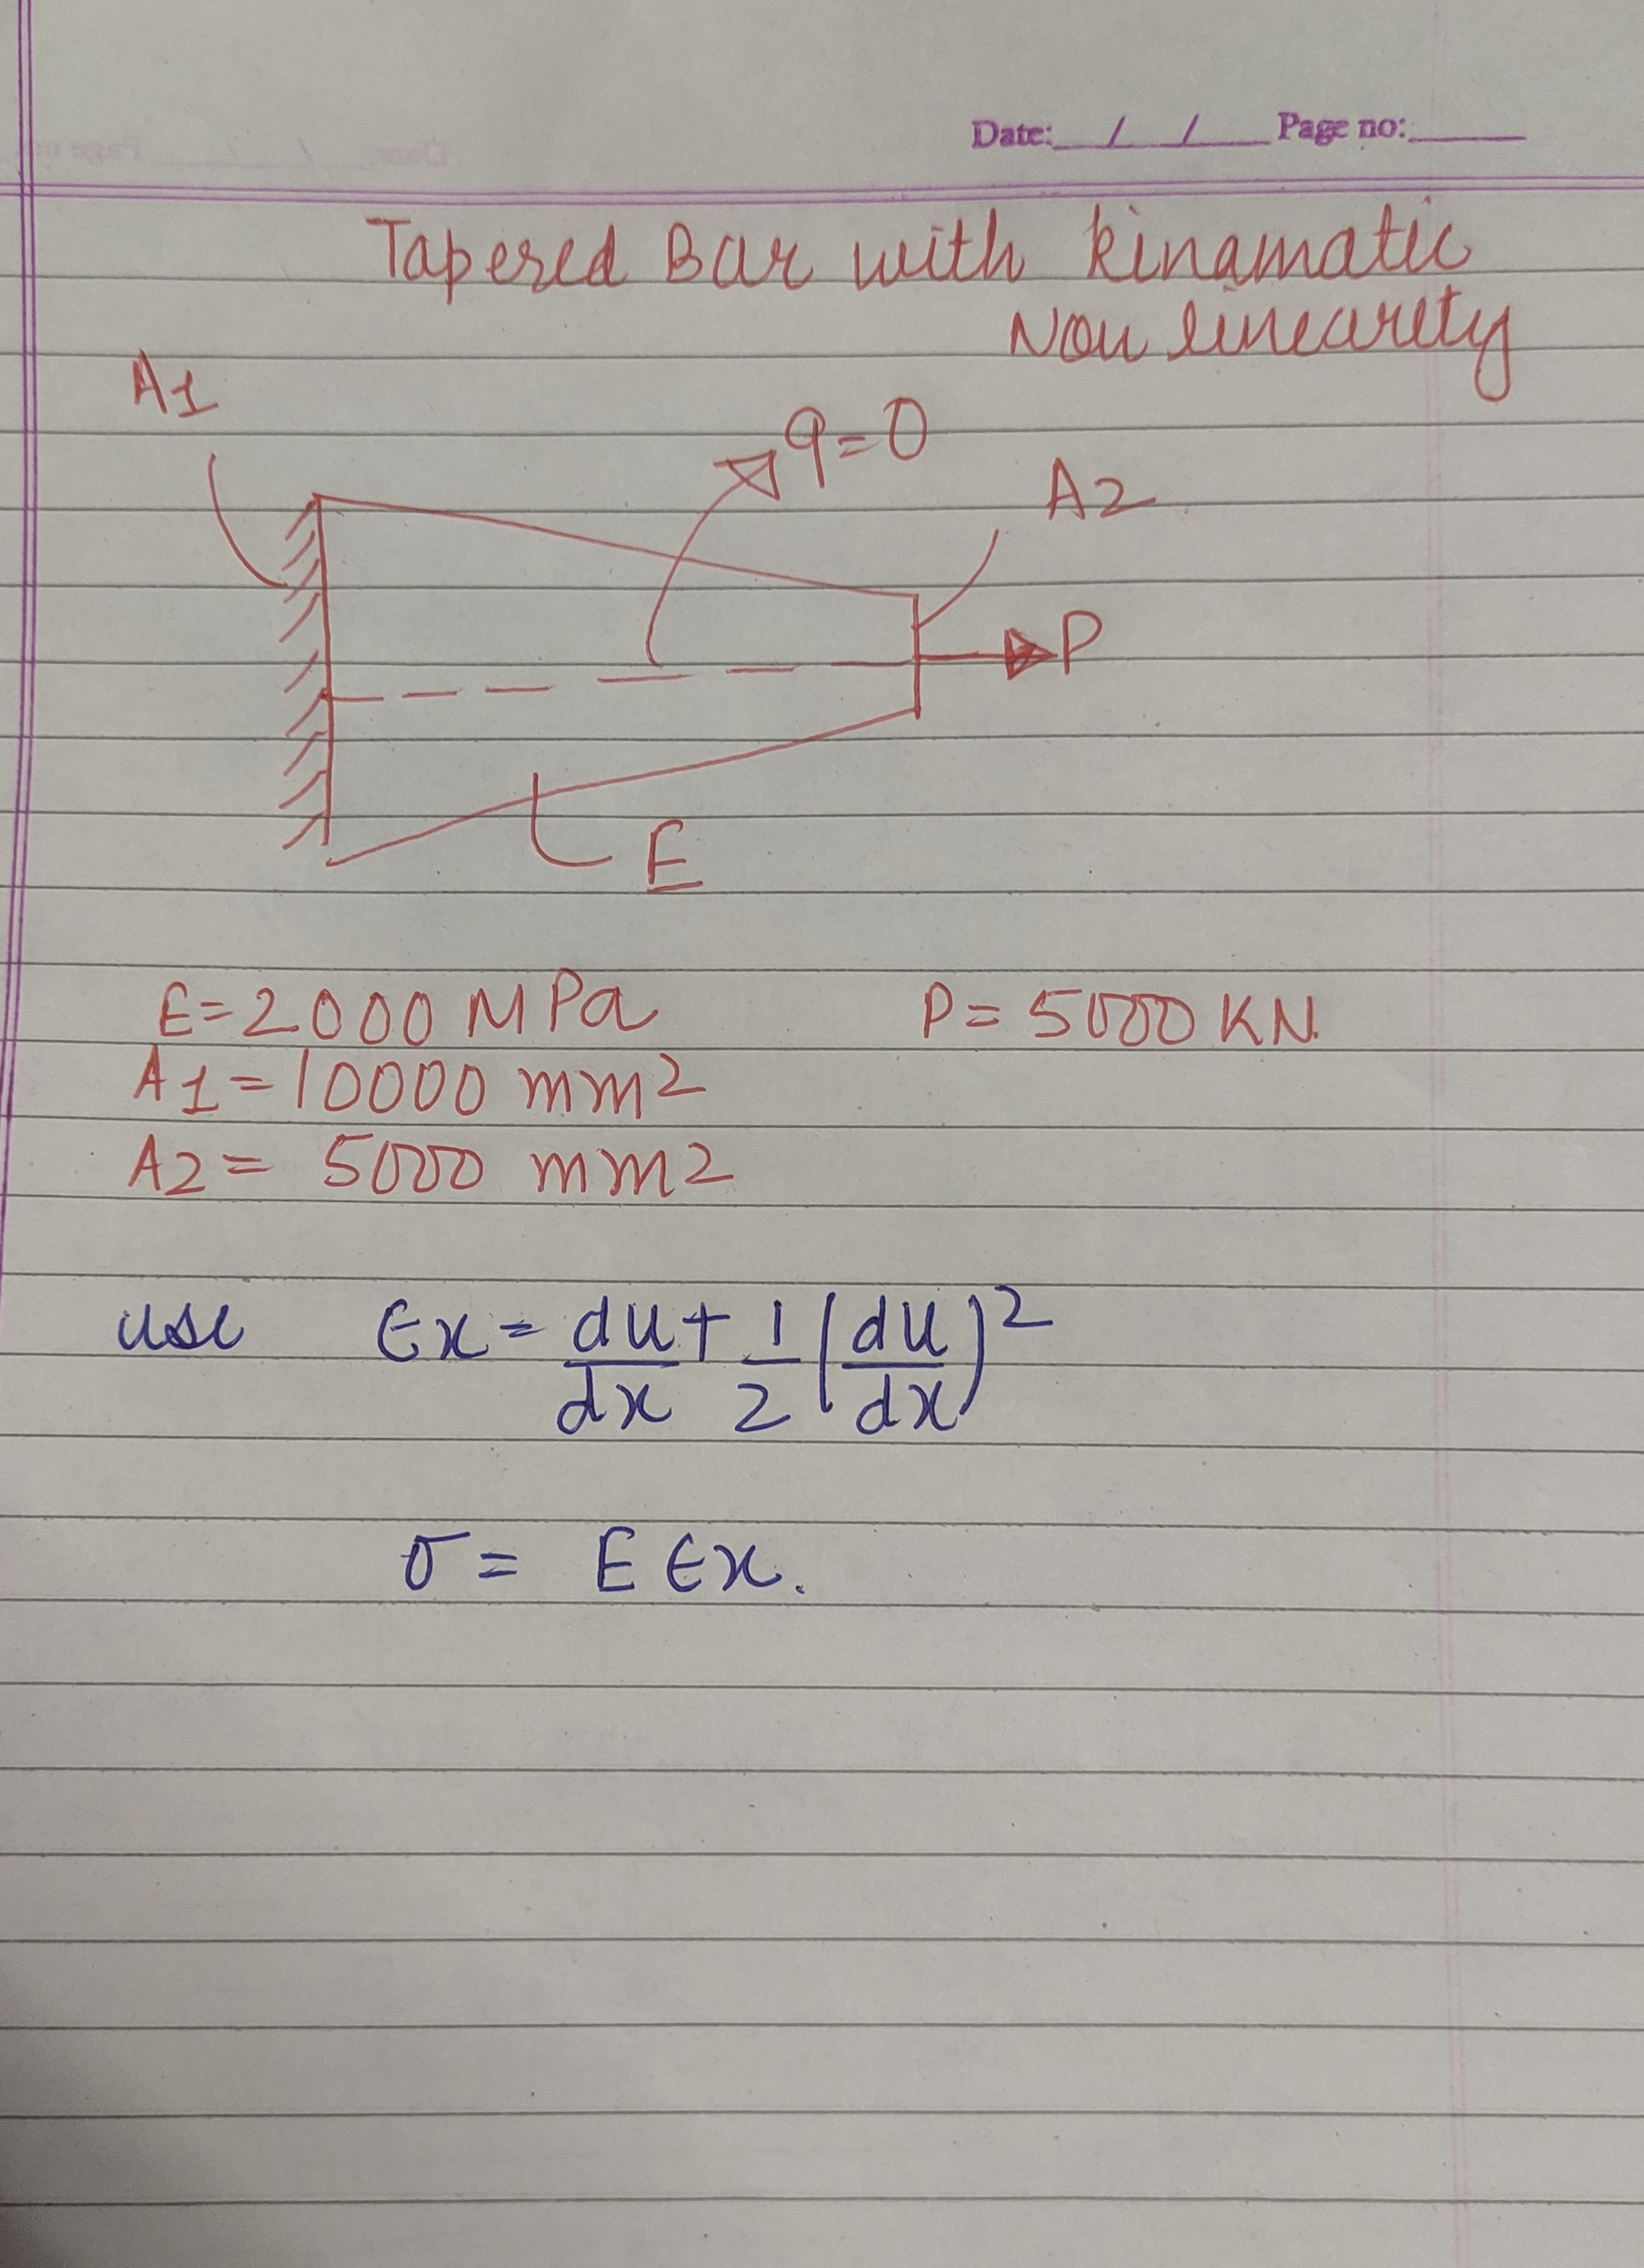 Date: / / Page no:
Tapered Bar with kinamatic
Non linearity
A1
q=0
A2
P
E
E=2000 MPa P= 5000 KN.
A1=10000 mm2
A2= 5000 mm2
use Ex= du/dx + 1/2 (du/dx)2
σ= E Ex.